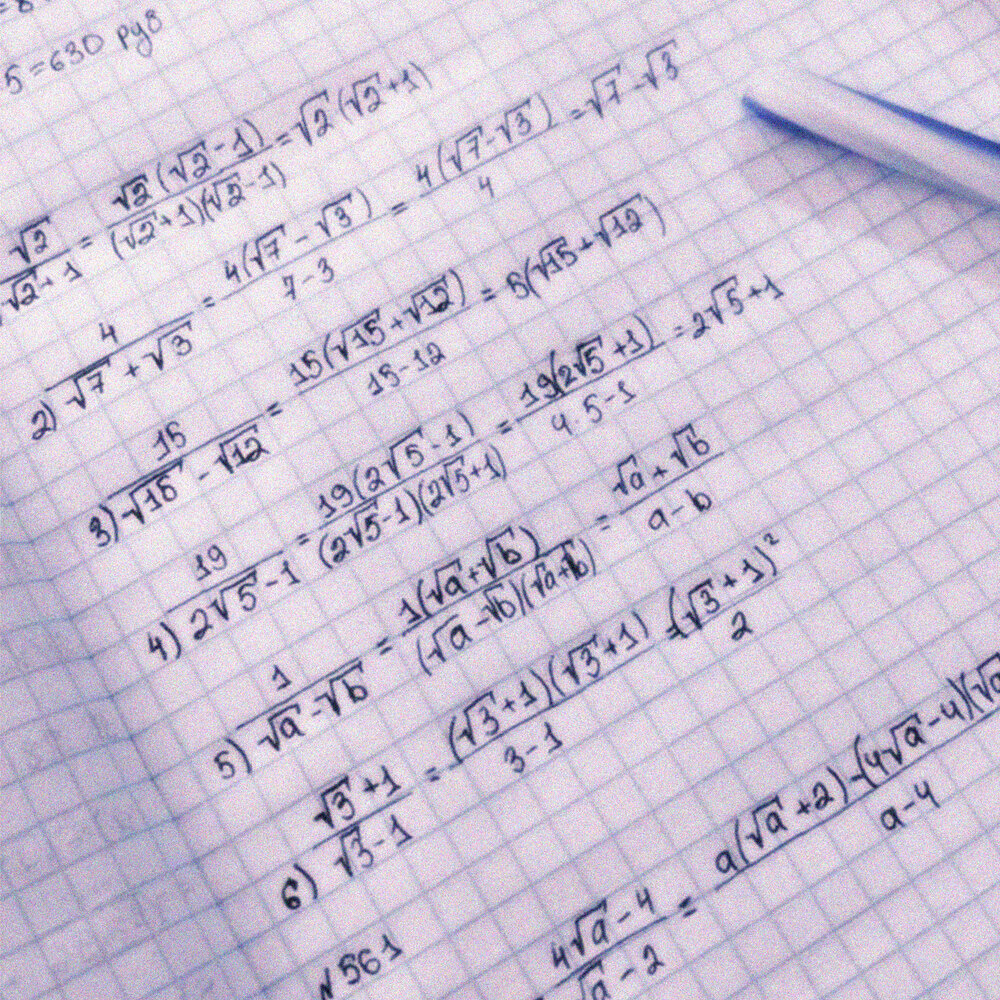 =8
5 = 630 руб
√2/(√2+1) = √2(√2-1)/((√2+1)(√2-1)) = √2(√2+1)
2) 4/(√7+√3) = 4(√7-√3)/(7-3) = 4(√7-√3)/4 = √7-√3
3) 15/(√15-√12) = 15(√15+√12)/(15-12) = 5(√15+√12)
4) 19/(2√5-1) = 19(2√5-1)/((2√5-1)(2√5+1)) = 19(2√5+1)/(4·5-1) = 2√5+1
5) 1/(√a-√b) = 1(√a+√b)/((√a-√b)(√a+√b)) = (√a+√b)/(a-b)
6) (√3+1)/(√3-1) = (√3+1)(√3+1)/(3-1) = (√3+1)²/2
№561
(4√a-4)/(√a-2) = (a(√a+2)-(4√a-4)(√a/(a-4)